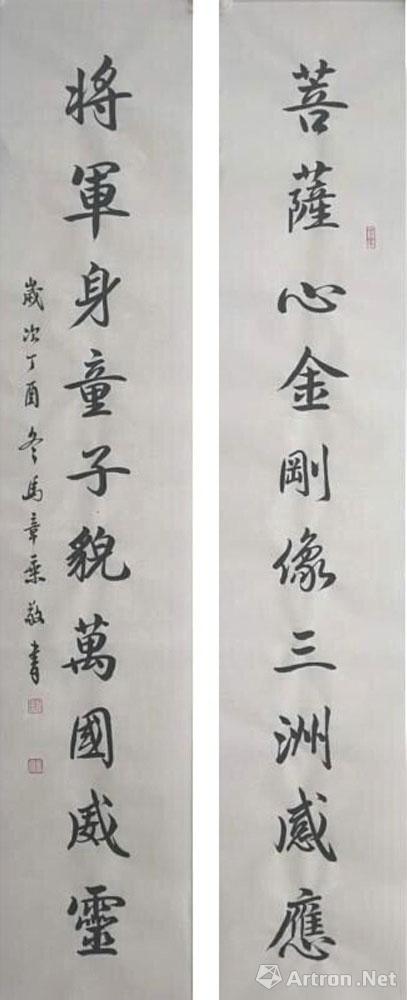 菩薩心金剛像三洲感應
將軍身童子貌萬國威靈
歲次丁酉冬馬章乘敬書
Artron.Net